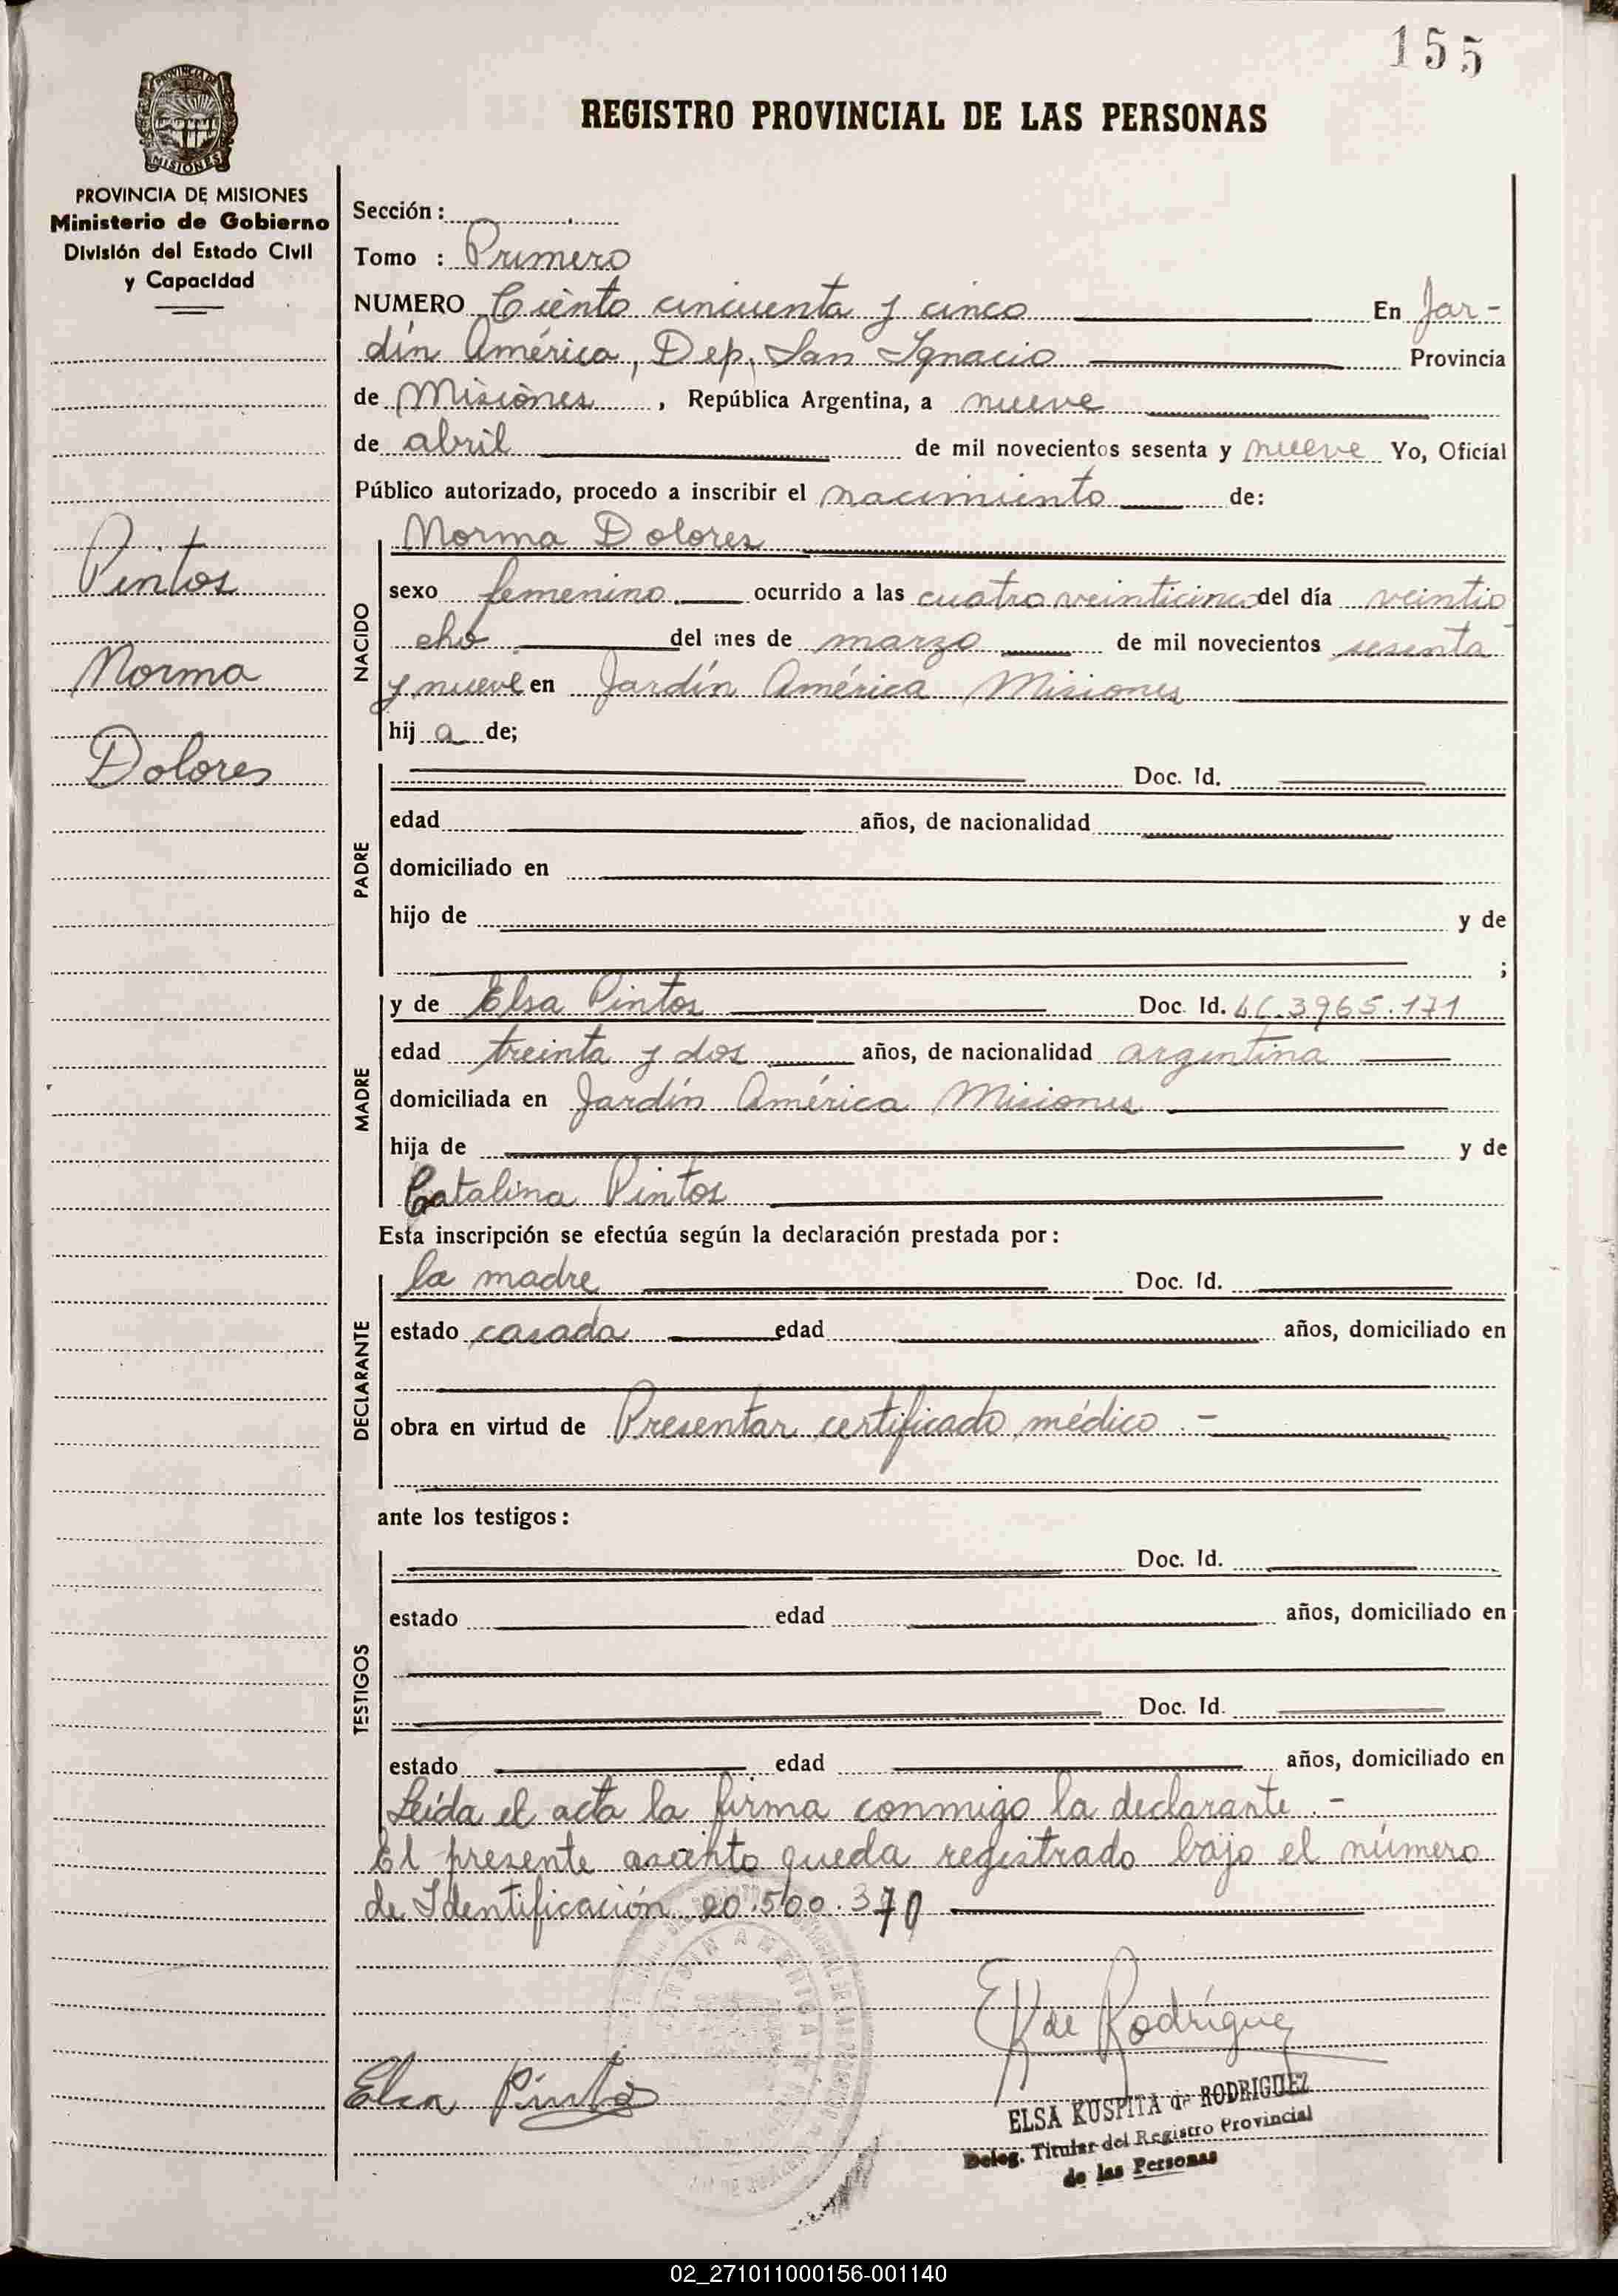 155
PROVINCIA DE
MISIONES
REGISTRO PROVINCIAL DE LAS PERSONAS
PROVINCIA DE MISIONES
Ministerio de Gobierno
División del Estado Civil
y Capacidad
Pintos
Norma
Dolores
Sección :
Tomo : Primero
NUMERO Ciento cincuenta y cinco En Jar-
dín América, Dep. San Ignacio Provincia
de Misiones , República Argentina, a nueve
de abril de mil novecientos sesenta y nueve Yo, Oficial
Público autorizado, procedo a inscribir el nacimiento de:
NACIDO
Norma Dolores
sexo femenino ocurrido a las cuatro veinticinco del día veintio
cho del mes de marzo de mil novecientos sesenta
y nueve en Jardín América Misiones
hij a de;
PADRE
Doc. Id.
edad años, de nacionalidad
domiciliado en
hijo de y de
;
MADRE
y de Elsa Pintos Doc. Id. LC.3965.171
edad treinta y dos años, de nacionalidad argentina
domiciliada en Jardín América Misiones
hija de y de
Catalina Pintos
Esta inscripción se efectúa según la declaración prestada por :
DECLARANTE
la madre Doc. Id.
estado casada edad años, domiciliado en
obra en virtud de Presentar certificado médico .-
ante los testigos :
TESTIGOS
Doc. Id.
estado edad años, domiciliado en
Doc. Id.
estado edad años, domiciliado en
Leída el acta la firma conmigo la declarante .-
El presente asiento queda registrado bajo el número
de Identificación 20.500.370
JARDIN AMERICA
EK de Rodríguez
Elsa Pintos
ELSA KUSPITA de RODRIGUEZ
Deleg. Titular del Registro Provincial
de las Personas
02_271011000156-001140